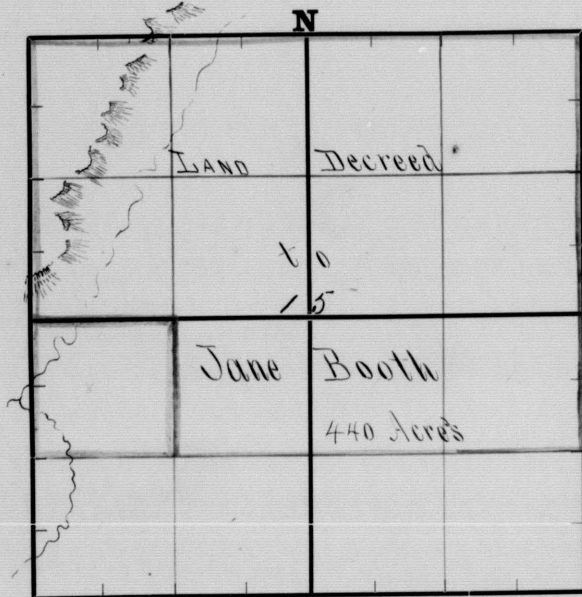 N
LAND Decreed
to
15
Jane Booth
440 Acres